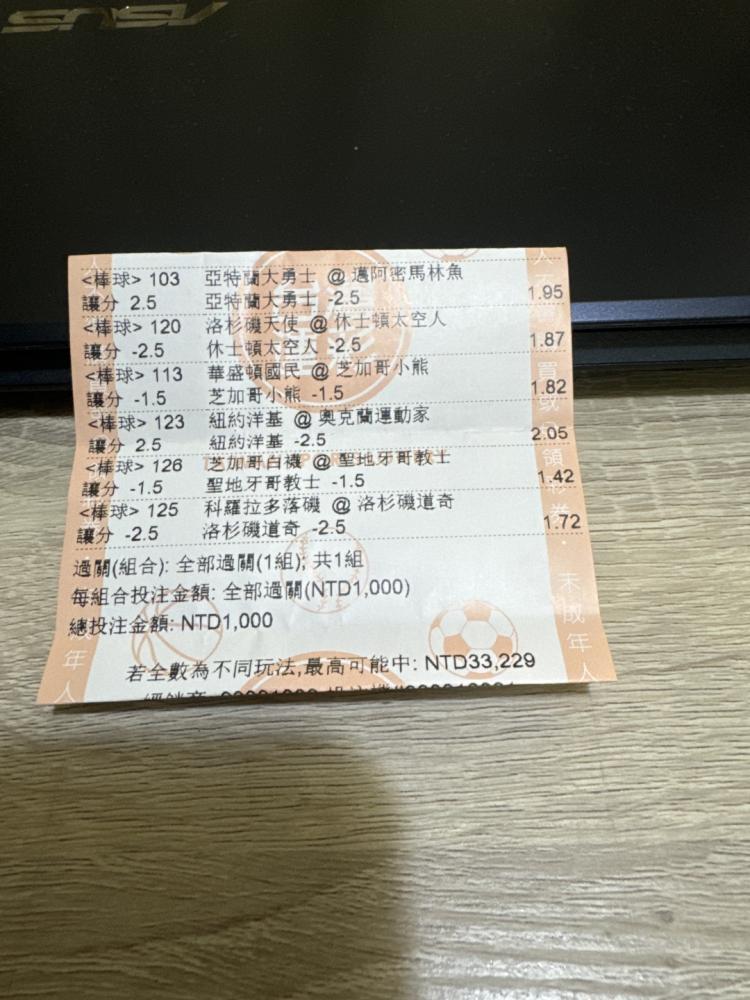 ASUS
<棒球> 103 亞特蘭大勇士 @ 邁阿密馬林魚
讓分 2.5 亞特蘭大勇士 -2.5 1.95
<棒球> 120 洛杉磯天使 @ 休士頓太空人
讓分 -2.5 休士頓太空人 -2.5 1.87
<棒球> 113 華盛頓國民 @ 芝加哥小熊
讓分 -1.5 芝加哥小熊 -1.5 1.82
<棒球> 123 紐約洋基 @ 奧克蘭運動家
讓分 2.5 紐約洋基 -2.5 2.05
<棒球> 126 芝加哥白襪 @ 聖地牙哥教士
讓分 -1.5 聖地牙哥教士 -1.5 1.42
<棒球> 125 科羅拉多落磯 @ 洛杉磯道奇
讓分 -2.5 洛杉磯道奇 -2.5 1.72
過關(組合): 全部過關(1組); 共1組
每組合投注金額: 全部過關(NTD1,000)
總投注金額: NTD1,000
若全數為不同玩法,最高可能中: NTD33,229
未成年人